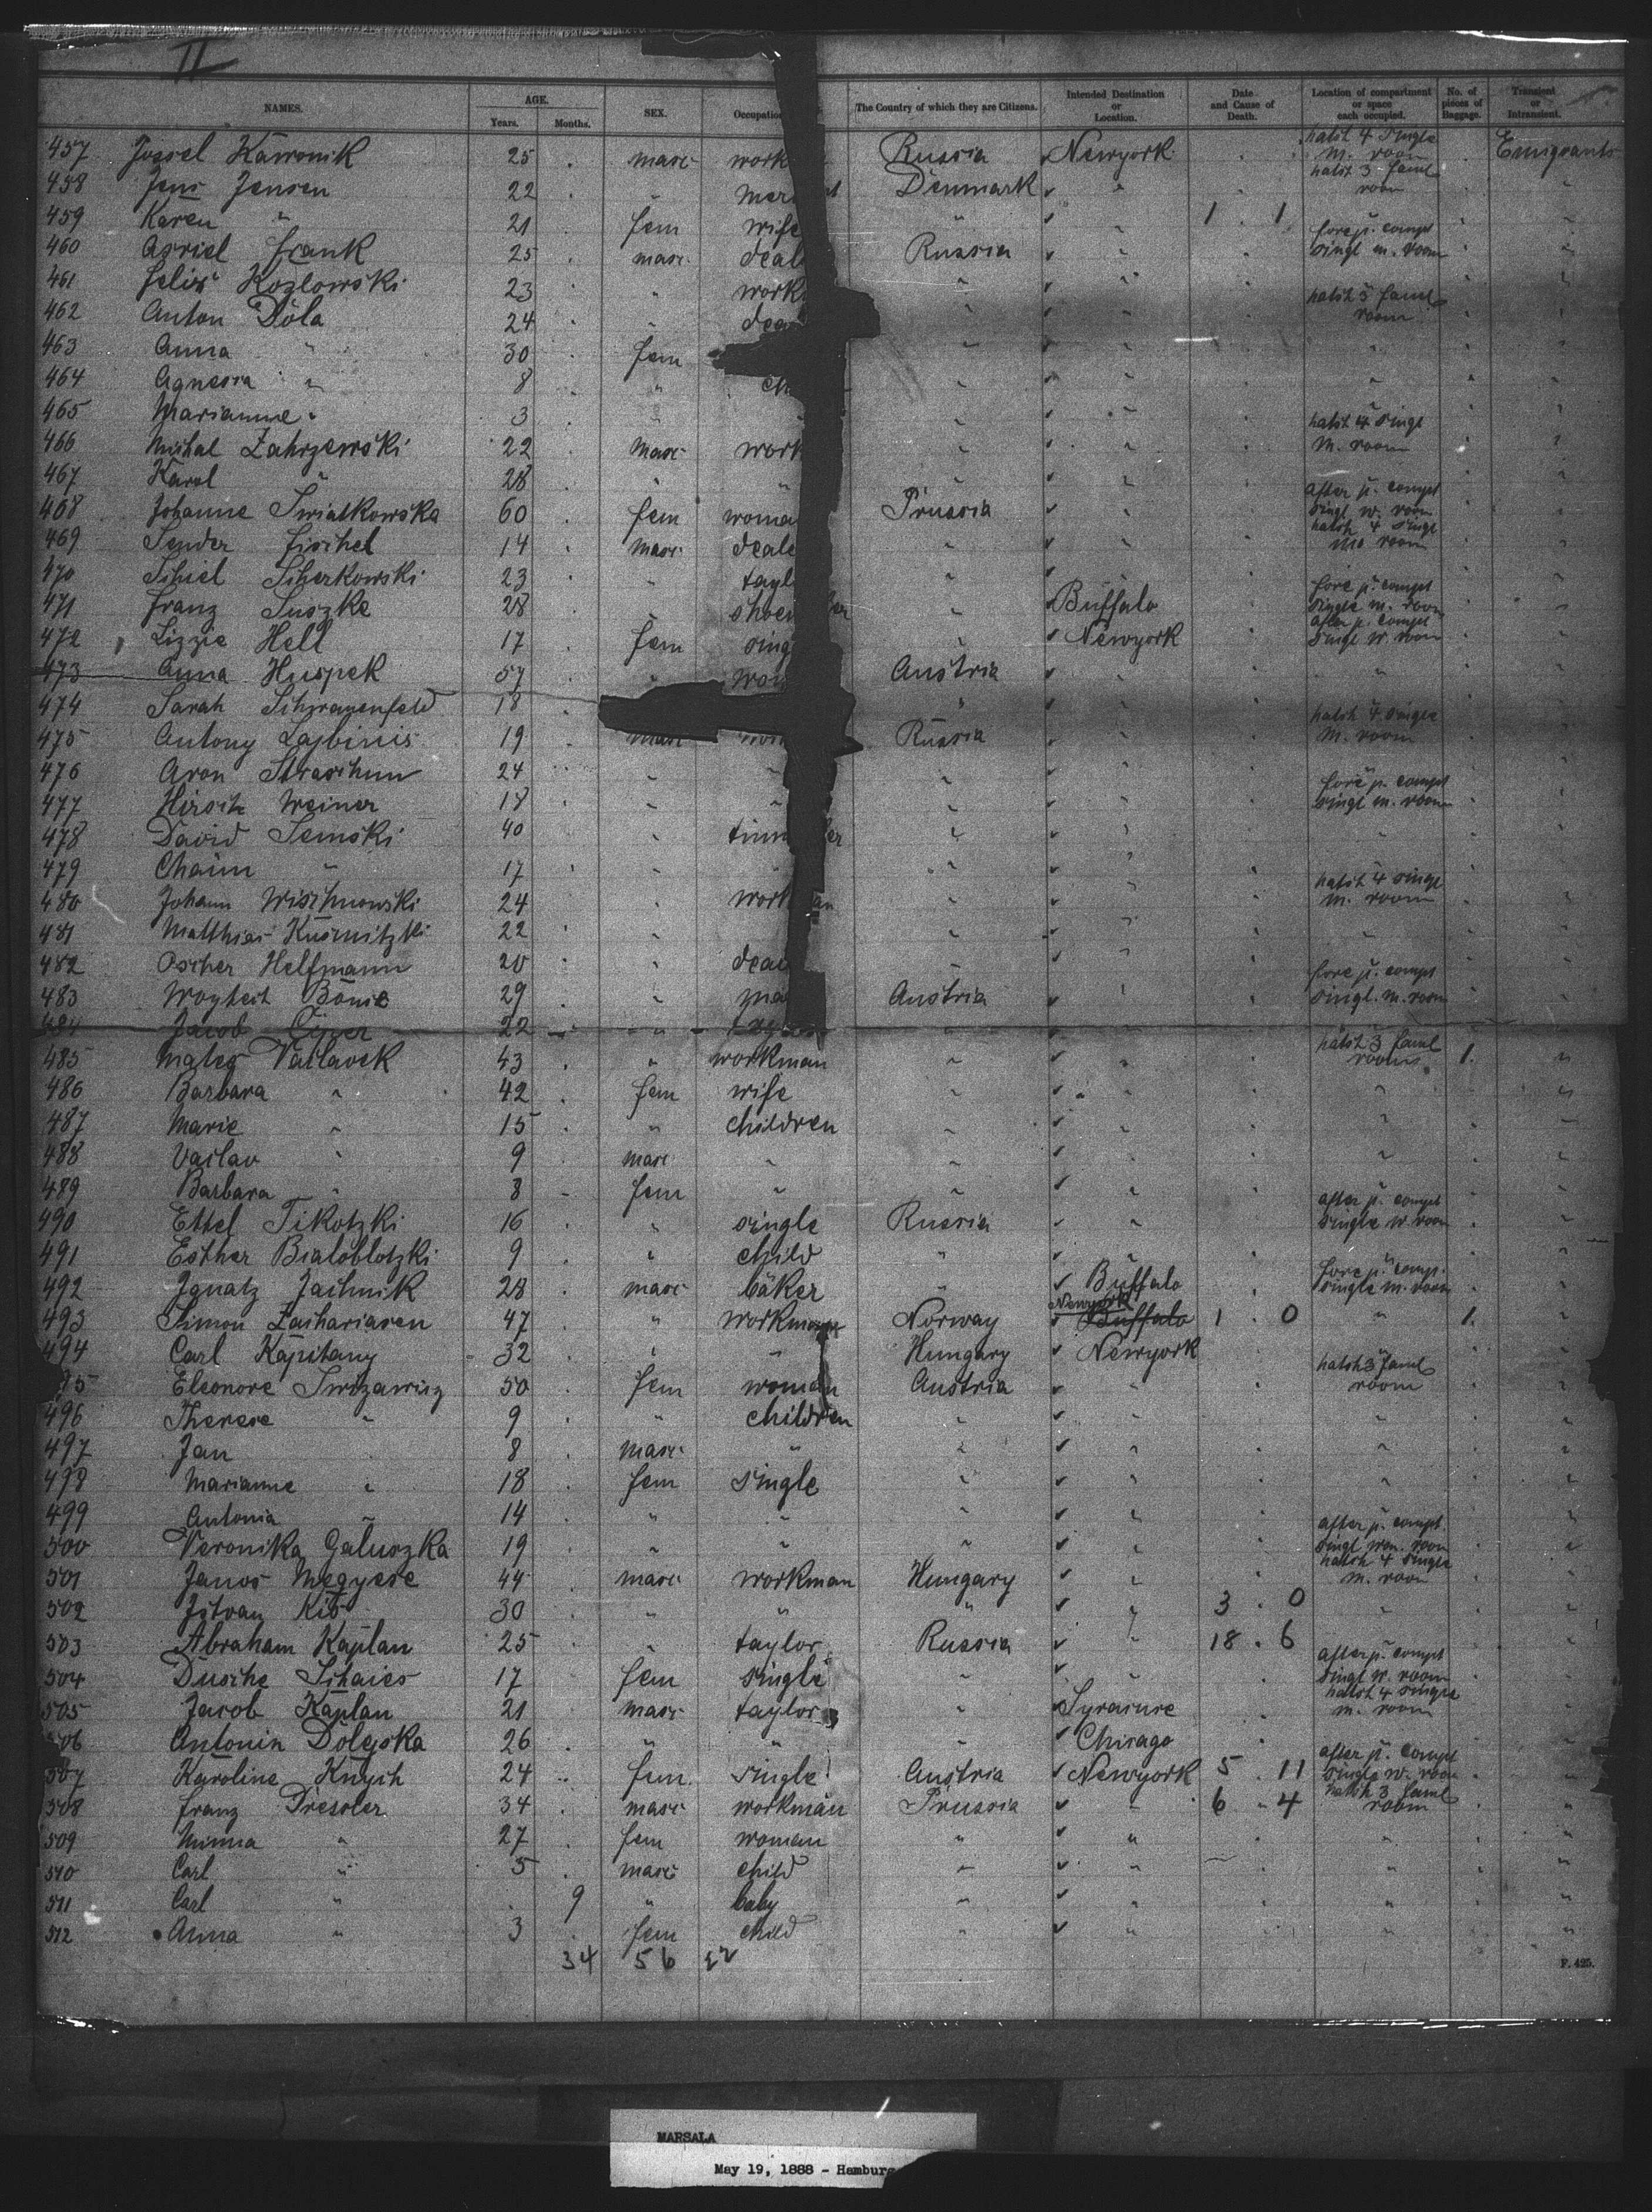 II
NAMES. AGE. Years. Months. SEX. Occupation The Country of which they are Citizens. Intended Destination or Location. Date and Cause of Death. Location of compartment or space each occupied. No. of pieces of Baggage. Transient or Intransient.
457 Jossel 25 masc work Russia Newyork hatch 4 single m. room Emigrants
458 Jens Jensen 22 " Mer t Denmark " hatch 3 faml room "
459 Karen " 21 fem wife " " 1 1 "
460 Asriel Frank 25 masc deal Russia " fore p. compt singl m. room "
461 Felix Kozlowski 23 " work " " " "
462 Anton Dola 24 " deal " " hatch 3 faml room "
463 Anna " 30 fem " " " "
464 " 8 " ch " " " "
465 Marianne " 3 " " " " " "
466 Michal Zahrzewski 22 masc work " " hatch 4 singl m. room "
467 Karol " 28 " " " " " "
468 Johanne Swiatkowska 60 fem woma Prussia " after p. compt singl w. room "
469 Sender Fischel 14 masc deale " " hatch 4 singl m. room "
470 Schiel 23 " tayl " " " "
471 Franz Suszke 28 " shoem er " Buffalo fore p. compt single m. room "
472 Lizzie Hell 17 fem sing " Newyork after p. compt singl w. room "
473 Anna Huspek 57 " wom Austria " " "
474 Sarah 18 " " "
475 Antony 19 masc work Russia " hatch 4 single m. room "
476 Aron Straschun 24 " " " " " "
477 Hirsch Weiner 17 " " " " fore p. compt singl m. room "
478 David Semski 40 " tinn er " " " "
479 Chaim " 17 " " " " " "
480 Johann Wischnowski 24 " work an " " hatch 4 singl m. room "
481 Matthias 22 " " " " "
482 Oscher Helfmann 20 " deal " " " "
483 29 " Austria " fore p. compt singl. m. room "
484 Jacob 22 " " " " "
485 Mates Vaclavek 43 " workman " " hatch 3 faml room 1. "
486 Barbara " 42 fem wife " " " "
487 Marie " 15 " children " " " "
488 Vaclav " 9 masc " " " " "
489 Barbara " 8 fem " " " " "
490 Ettel Tikotzki 16 " single Russia " after p. compt single w. room "
491 Esther Bialoblotzki 9 " child " " " "
492 Ignatz Jachnik 28 masc bäker " Buffalo fore p. comp. single m. room "
493 Simon Zachariasen 47 " workman Norway Newyork Buffalo 1 0 " 1. "
494 Carl Kapitany 32 " " Hungary Newyork " "
95 Eleonore 50 fem woman Austria " hatch 3 faml room "
496 Therese " 9 " children " " " "
497 Jan 8 masc " " " " "
498 Marianne " 18 fem single " " " "
499 Antonia " 14 " " " " " "
500 Veronika Galuszka 19 " " " " after p. compt singl wom. room "
501 Janos Megyese 44 masc workman Hungary " hatch 4 single m. room "
502 Istvan Kis 30 " " " " 3 0 " "
503 Abraham Kaplan 25 " taylor Russia " 18 6 "
504 Dusche Schaies 17 fem single " " after p. compt singl w. room "
505 Jacob Kaplan 21 masc taylor " Syracuse hatch 4 single m. room "
506 Antonin Dolejska 26 " " " Chicago " "
507 Karoline Knych 24 fem single Austria Newyork 5 11 after p. compt single w. room "
508 Franz Dressler 34 masc workman Prussia " 6 4 hatch 3 faml room "
509 Minna " 27 fem woman " " " "
510 Carl " 5 masc child " " " "
511 Carl " 9 " baby " " " "
512 Anna " 3 fem child " " " "
34 56
F. 425.
MARSALA
May 19, 1888 - Hamburg